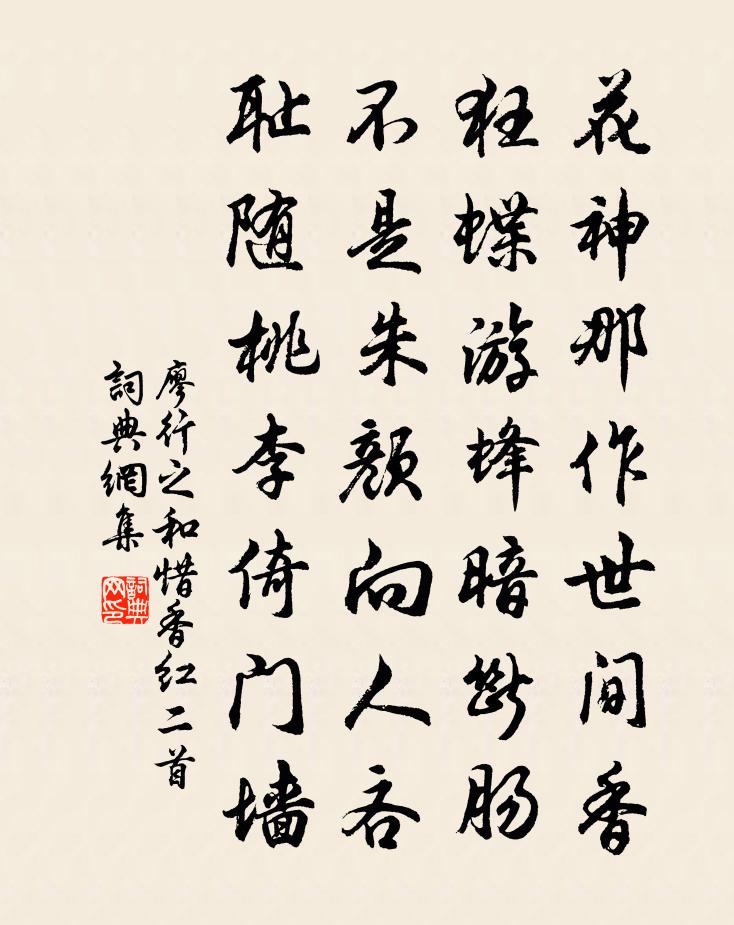 花神那作世间香
狂蝶游蜂暗断肠
不是朱颜向人吝
耻随桃李倚门墙
廖行之和惜香红二首
詞典網集
詞典网印